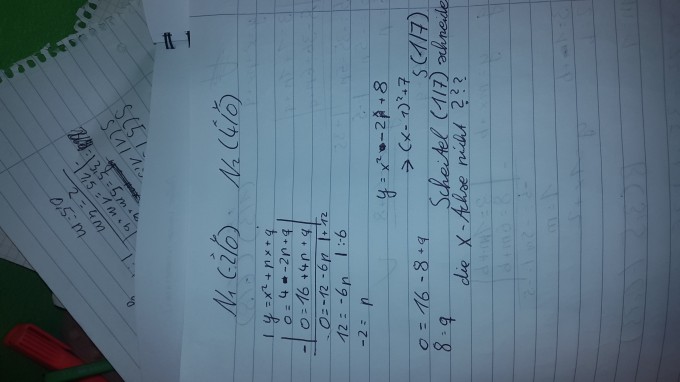 N₁ (-2/0) N₂ (4/0)
| y = x² + px + q
| 0 = 4 - 2p + q |
-| 0 = 16 + 4p + q |
0 = -12 - 6p | +12
12 = -6p | :-6
-2 = p
y = x² - 2x + 8
→ (x - 1)² + 7
S (1|7)
0 = 16 - 8 + q
8 = q
Scheitel (1|7) schneidet
die x-Achse nicht ???
S(5|
S(1|
3,5 = 5m + b
-1,5 = 1m + b
2 = 4m
0,5 = m